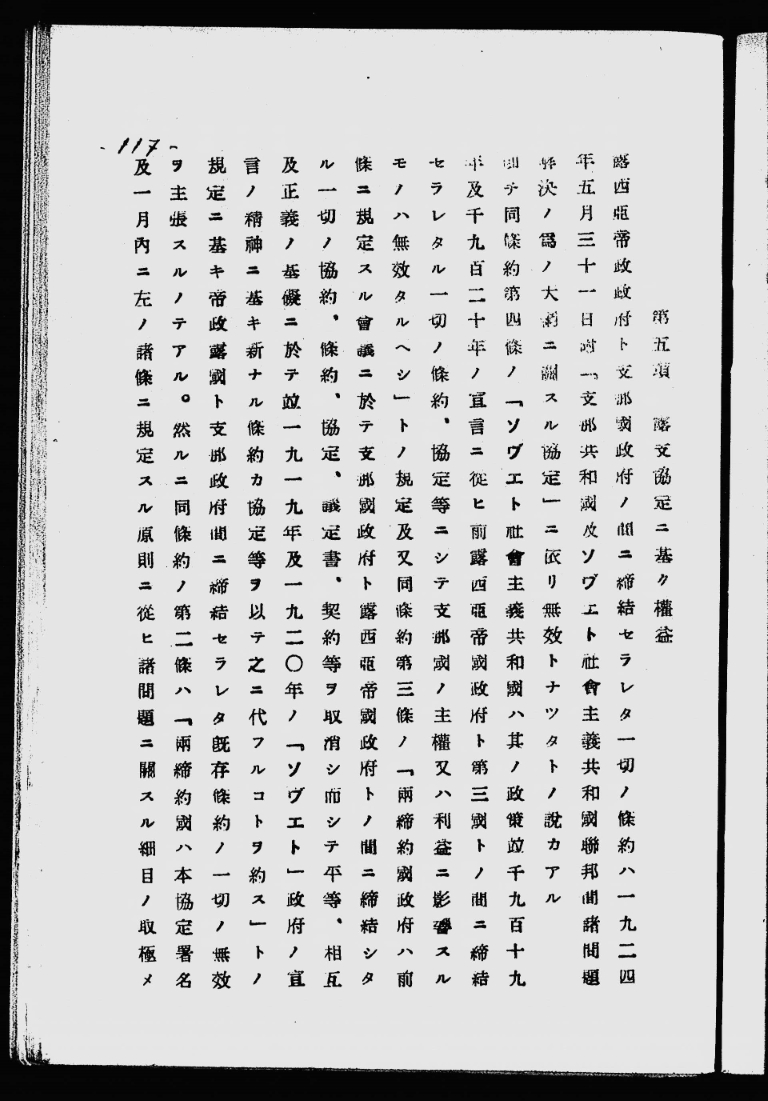 -117-
第五項　露支協定ニ基ク權益
露西亞帝政政府ト支那國政府ノ間ニ締結セラレタ一切ノ條約ハ一九二四
年五月三十一日附「支那共和國及ソヴエト社會主義共和國聯邦間諸問題
解決ノ爲ノ大綱ニ關スル協定」ニ依リ無效トナツタトノ說カアル
即チ同條約第四條ノ「ソヴエト社會主義共和國ハ其ノ政策竝千九百十九
年及千九百二十年ノ宣言ニ從ヒ前露西亞帝國政府ト第三國トノ間ニ締結
セラレタル一切ノ條約、協定等ニシテ支那國ノ主權又ハ利益ニ影響スル
モノハ無效タルヘシ」トノ規定及又同條約第三條ノ「兩締約國政府ハ前
條ニ規定スル會議ニ於テ支那國政府ト露西亞帝國政府トノ間ニ締結シタ
ル一切ノ協約、條約、協定、議定書、契約等ヲ取消シ而シテ平等、相互
及正義ノ基礎ニ於テ竝一九一九年及一九二〇年ノ「ソヴエト」政府ノ宣
言ノ精神ニ基キ新ナル條約カ協定等ヲ以テ之ニ代フルコトヲ約ス」トノ
規定ニ基キ帝政露國ト支那政府間ニ締結セラレタ既存條約ノ一切ノ無效
ヲ主張スルノテアル。然ルニ同條約ノ第二條ハ「兩締約國ハ本協定署名
及一月內ニ左ノ諸條ニ規定スル原則ニ從ヒ諸問題ニ關スル細目ノ取極メ